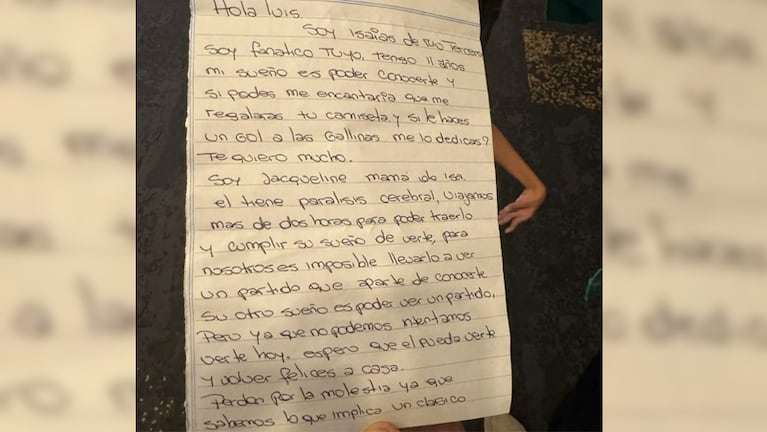 Hola Luis.
Soy Isaias de Rio Tercero
Soy fanatico TUYO, tengo 11 años
mi sueño es poder conocerte y
si podes me encantaria que me
regalaras tu camiseta y si le haces
un Gol a las Gallinas me lo dedicas?
Te quiero mucho.
Soy Jacqueline mamá de Isa.
el tiene paralisis cerebral, viajamos
mas de dos horas para poder traerlo
y cumplir su sueño de verte, para
nosotros es imposible llevarlo a ver
un partido que aparte de conocerte
su otro sueño es poder ver un partido,
Pero ya que no podemos intentamos
verte hoy. espero que el pueda verte
y volver felices a casa.
Perdon por la molestia ya que
sabemos lo que implica un clasico